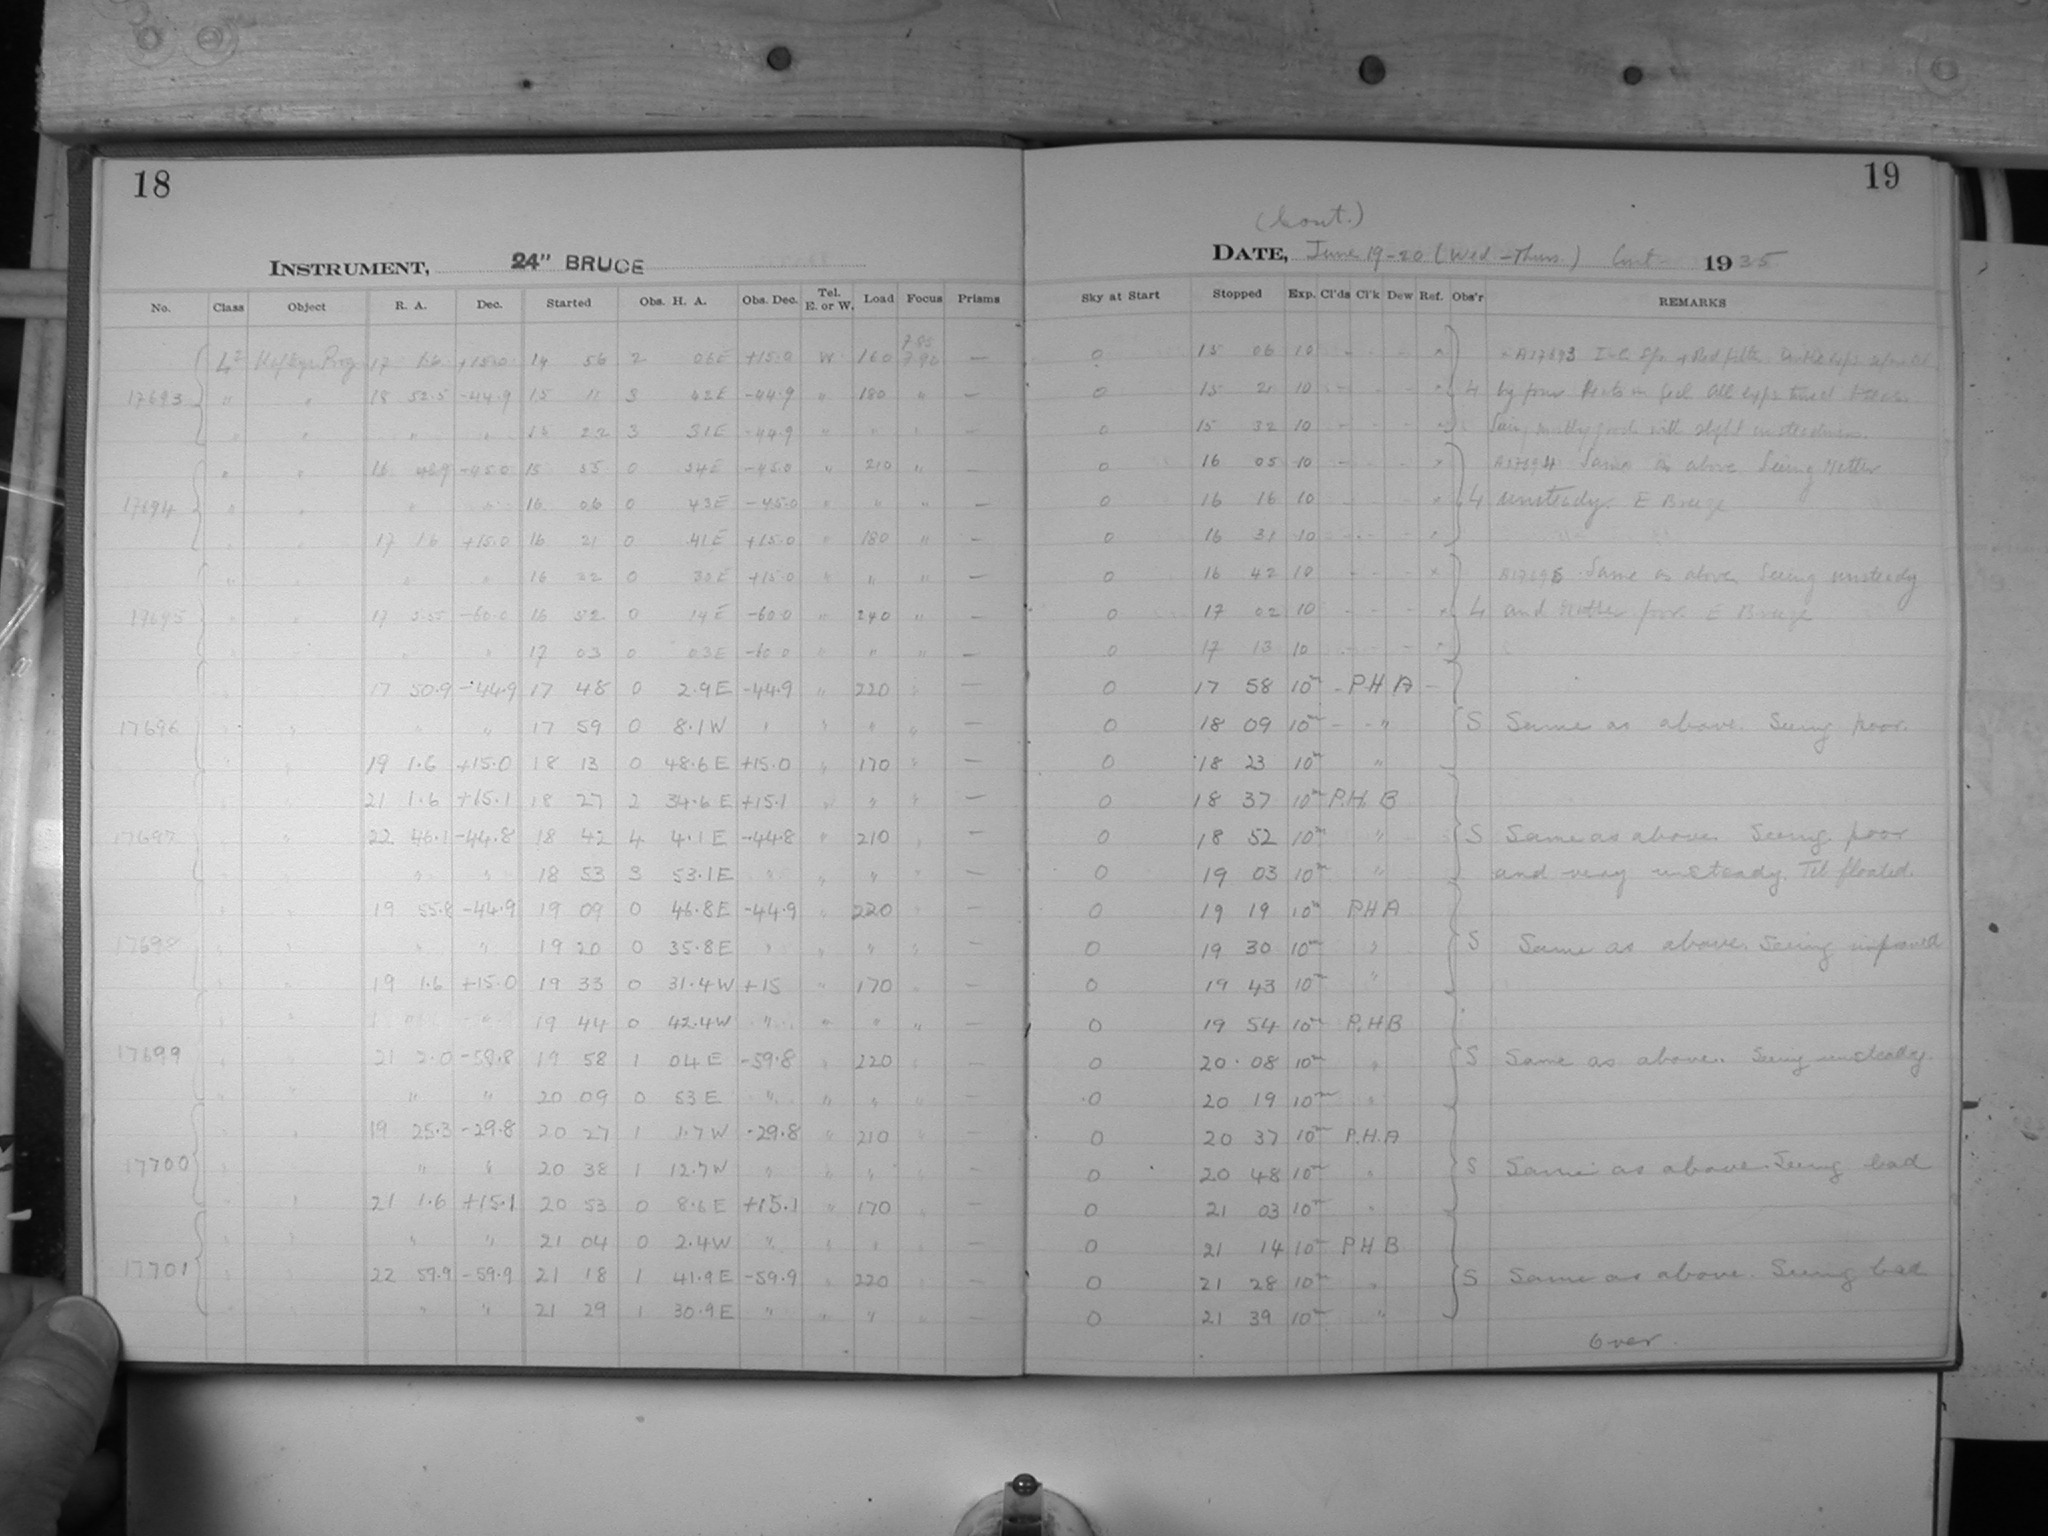 18
INSTRUMENT, 24" BRUCE
No. Class Object R. A. Dec. Started Obs. H. A. Obs. Dec. Tel. E. or W. Load Focus Prisms
17 1.6 +15.0 14 56 2 06E +15.0 W 160 7.90 —
17693 " " 18 52.5 -44.9 15 11 3 42E -44.9 " 180 " —
" " " " 15 22 3 31E -44.9 " " " —
" " 16 -45.0 15 55 0 54E -45.0 " 210 " —
17694 " " " " 16 06 0 43E -45.0 " " " —
" " 17 1.6 +15.0 16 21 0 41E +15.0 " 180 " —
" " " " 16 32 0 30E +15.0 " " " —
17695 " " 17 -60.0 16 52 0 14E -60.0 " 240 " —
" " " " 17 03 0 03E -60.0 " " " —
" " 17 50.9 -44.9 17 48 0 2.9E -44.9 " 220 " —
17696 " " " " 17 59 0 8.1W " " " " —
" " 19 1.6 +15.0 18 13 0 48.6E +15.0 " 170 " —
" 21 1.6 +15.1 18 27 2 34.6E +15.1 " " " —
17697 " " 22 46.1 -44.8 18 42 4 4.1E -44.8 " 210 " —
" " " " 18 53 3 53.1E " " " " —
" " 19 55.8 -44.9 19 09 0 46.8E -44.9 " 220 " —
17698 " " " " 19 20 0 35.8E " " " " —
" " 19 1.6 +15.0 19 33 0 31.4W +15 " 170 " —
" " 19 44 0 42.4W " " " " —
17699 " " 21 2.0 -59.8 19 58 1 04E -59.8 " 220 " —
" " " " 20 09 0 53E " " " " —
" " 19 25.3 -29.8 20 27 1 1.7W -29.8 " 210 " —
17700 " " " " 20 38 1 12.7W " " " " —
" " 21 1.6 +15.1 20 53 0 8.6E +15.1 " 170 " —
" " " " 21 04 0 2.4W " " " " —
17701 " " 22 59.9 -59.9 21 18 1 41.9E -59.9 " 220 " —
" " " " 21 29 1 30.9E " " " " —
19
(Cont.)
DATE, June 19-20 (Wed-Thurs.) Cont 1935
Sky at Start Stopped Exp. Cl'ds Cl'k Dew Ref. Obs'r REMARKS
0 15 06 10 - - - x A17693
0 15 21 10 - - - x 4 by four All exps
0 15 32 10 - - - x Seeing good with slight unsteadiness.
0 16 05 10 - - - x A17694 Same as above Seeing rather
0 16 16 10 - - - x 4 unsteady. E Breeze
0 16 31 10 - - - x
0 16 42 10 - - - x A17695 Same as above Seeing unsteady
0 17 02 10 - - - x 4 and rather poor E Breeze
0 17 13 10 - - - x
0 17 58 10m - P H A -
0 18 09 10m - - " S Same as above. Seeing poor.
0 18 23 10m "
0 18 37 10m P.H. B
0 18 52 10m " S Same as above. Seeing poor
0 19 03 10m " and very unsteady. Tel floated.
0 19 19 10m P H A
0 19 30 10m " S Same as above. Seeing improved
0 19 43 10m "
0 19 54 10m P.H B
0 20 08 10m " S Same as above. Seeing unsteady.
0 20 19 10m "
0 20 37 10m P.H.A
0 20 48 10m " S Same as above. Seeing bad
0 21 03 10m "
0 21 14 10m P H B
0 21 28 10m " S Same as above. Seeing bad
0 21 39 10m "
Over.